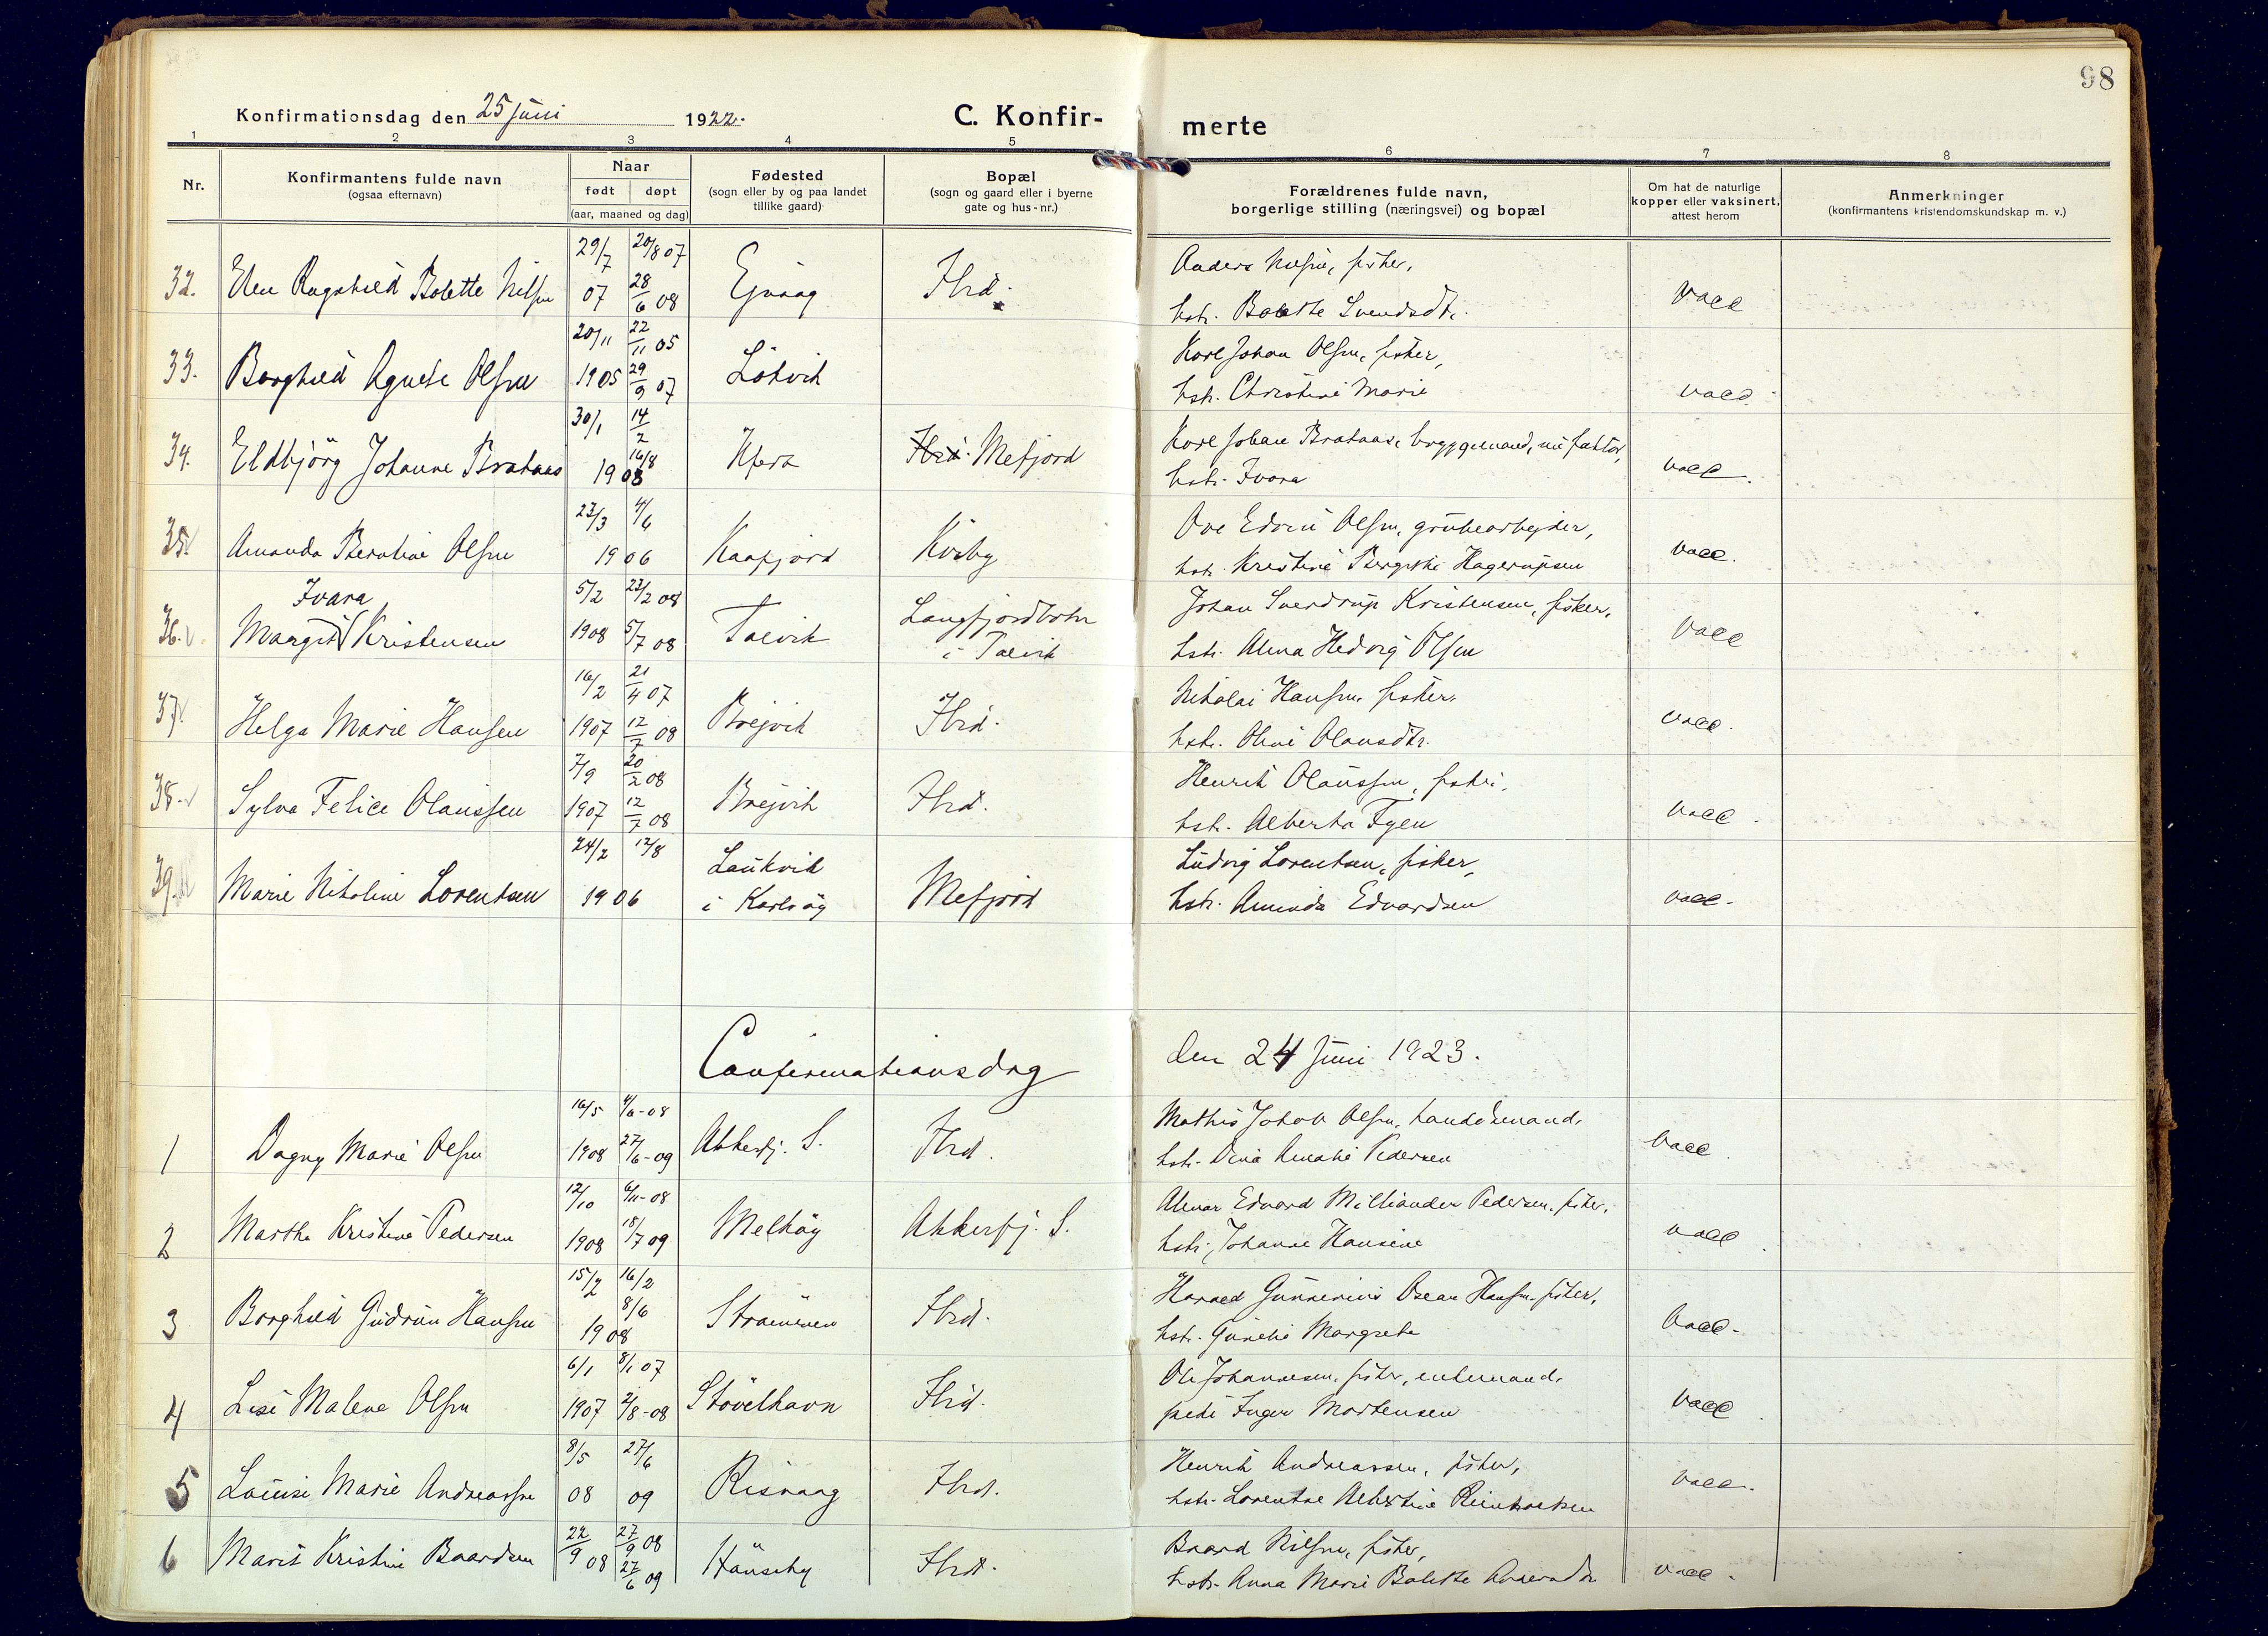 98
Konfirmationsdag den 25 juni 1922.
C. Konfir-
merte
1 2 3 4 5 6 7 8
Nr.
Konfirmantens fulde navn
(ogsaa efternavn)
Naar
født døpt
(aar, maaned og dag)
Fødested
(sogn eller by og paa landet
tillike gaard)
Bopæl
(sogn og gaard eller i byerne
gate og hus-nr.)
Forældrenes fulde navn,
borgerlige stilling (næringsvei) og bopæl
Om hat de naturlige
kopper eller vaksinert,
attest herom
Anmerkninger
(konfirmantens kristendomskundskap m. v.)
29/7 20/8 07 Anders Nilsen, fisker,
32. Elen Ragnhild Bolette Nilsen 07 28/6 08 Ejvaag Ibid. vacc
hstr. Bolette Svendsdtr.
20/11 22/11 05 Karl Johan Olsen, fisker,
33. Borghild Agnete Olsen 1905 29/9 07 Lökvik
hstr. Christine Marie vacc
30/1 14/2 Karl Johan Brataas, bryggemand, nu faktor,
34. Eldbjörg Johanne Brataas 16/8 Ibid. Mefjord vacc.
1908 hstr. Ivara
23/3 4/6 Ove Edvin Olsen, grubearbejder,
35. Amanda Berntine Olsen 1906 Kaafjord Kvalsby vacc.
hstr. Kristine Hagerupsen
Ivara 5/2 23/2 08 Langfjordbotn Johan Sverdrup Kristensen, fisker,
36. Margit Kristensen 1908 5/7 08 Talvik i Talvik vacc
hstr. Alma Hedvig Olsen
16/2 21/4 07 Nikolai Hansen, fisker,
37. Helga Marie Hansen 1907 12/7 08 Brejvik Ibid. vacc.
hstr. Oline Olausdtr.
7/9 20/2 08 Henrik Olaussen, fisker,
38. Sylva Felice Olaussen 1907 12/7 08 Brejvik Ibid. vacc.
hstr. Alberta Fyen
24/2 12/8 Laukvik Ludvig Lorentsen, fisker,
39. Marie Nikoline Lorentsen 1906 i Karlsöy Mefjord vacc.
hstr. Aminda Edvardsen
Confirmationsdag den 24 Juni 1923.
16/5 4/6-08 Mathis Jakob Olsen, handelsmand,
1 Dagny Marie Olsen 1908 27/6-09 Akkerfj. S. Ibid. vacc.
hstr. Dina Amalie Pedersen
12/10 6/11-08 Alvar Edvard Pedersen, fisker,
2 Martha Kristine Pedersen 1908 18/7 09 Melköy Akkerfj. S. vacc.
hstr. Johanne Hansine
15/2 16/2 Harald Gunnerius Oscar Hansen, fisker,
3 Borghild Gudrun Hansen 8/6 Straumen Ibid. vacc.
1908 hstr. Margrete
6/1 8/1 07 Ole Johannesen, fisker, enkemand,
4 Lise Malene Olsen 1907 2/8-08 Stövelhavn Ibid. vacc.
Inger Mortensen
8/5 27/6 Henrik Andreassen, fisker,
5 Louise Marie Andreassen 08 09 Risvaag Ibid. vacc.
hstr. Lorentse Albertine
22/9 08 27/9 08 Baard Nilsen, fisker,
6 Marit Kristine Baardsen 27/6 09 Ibid. vacc.
hstr. Anna Marie Bolette